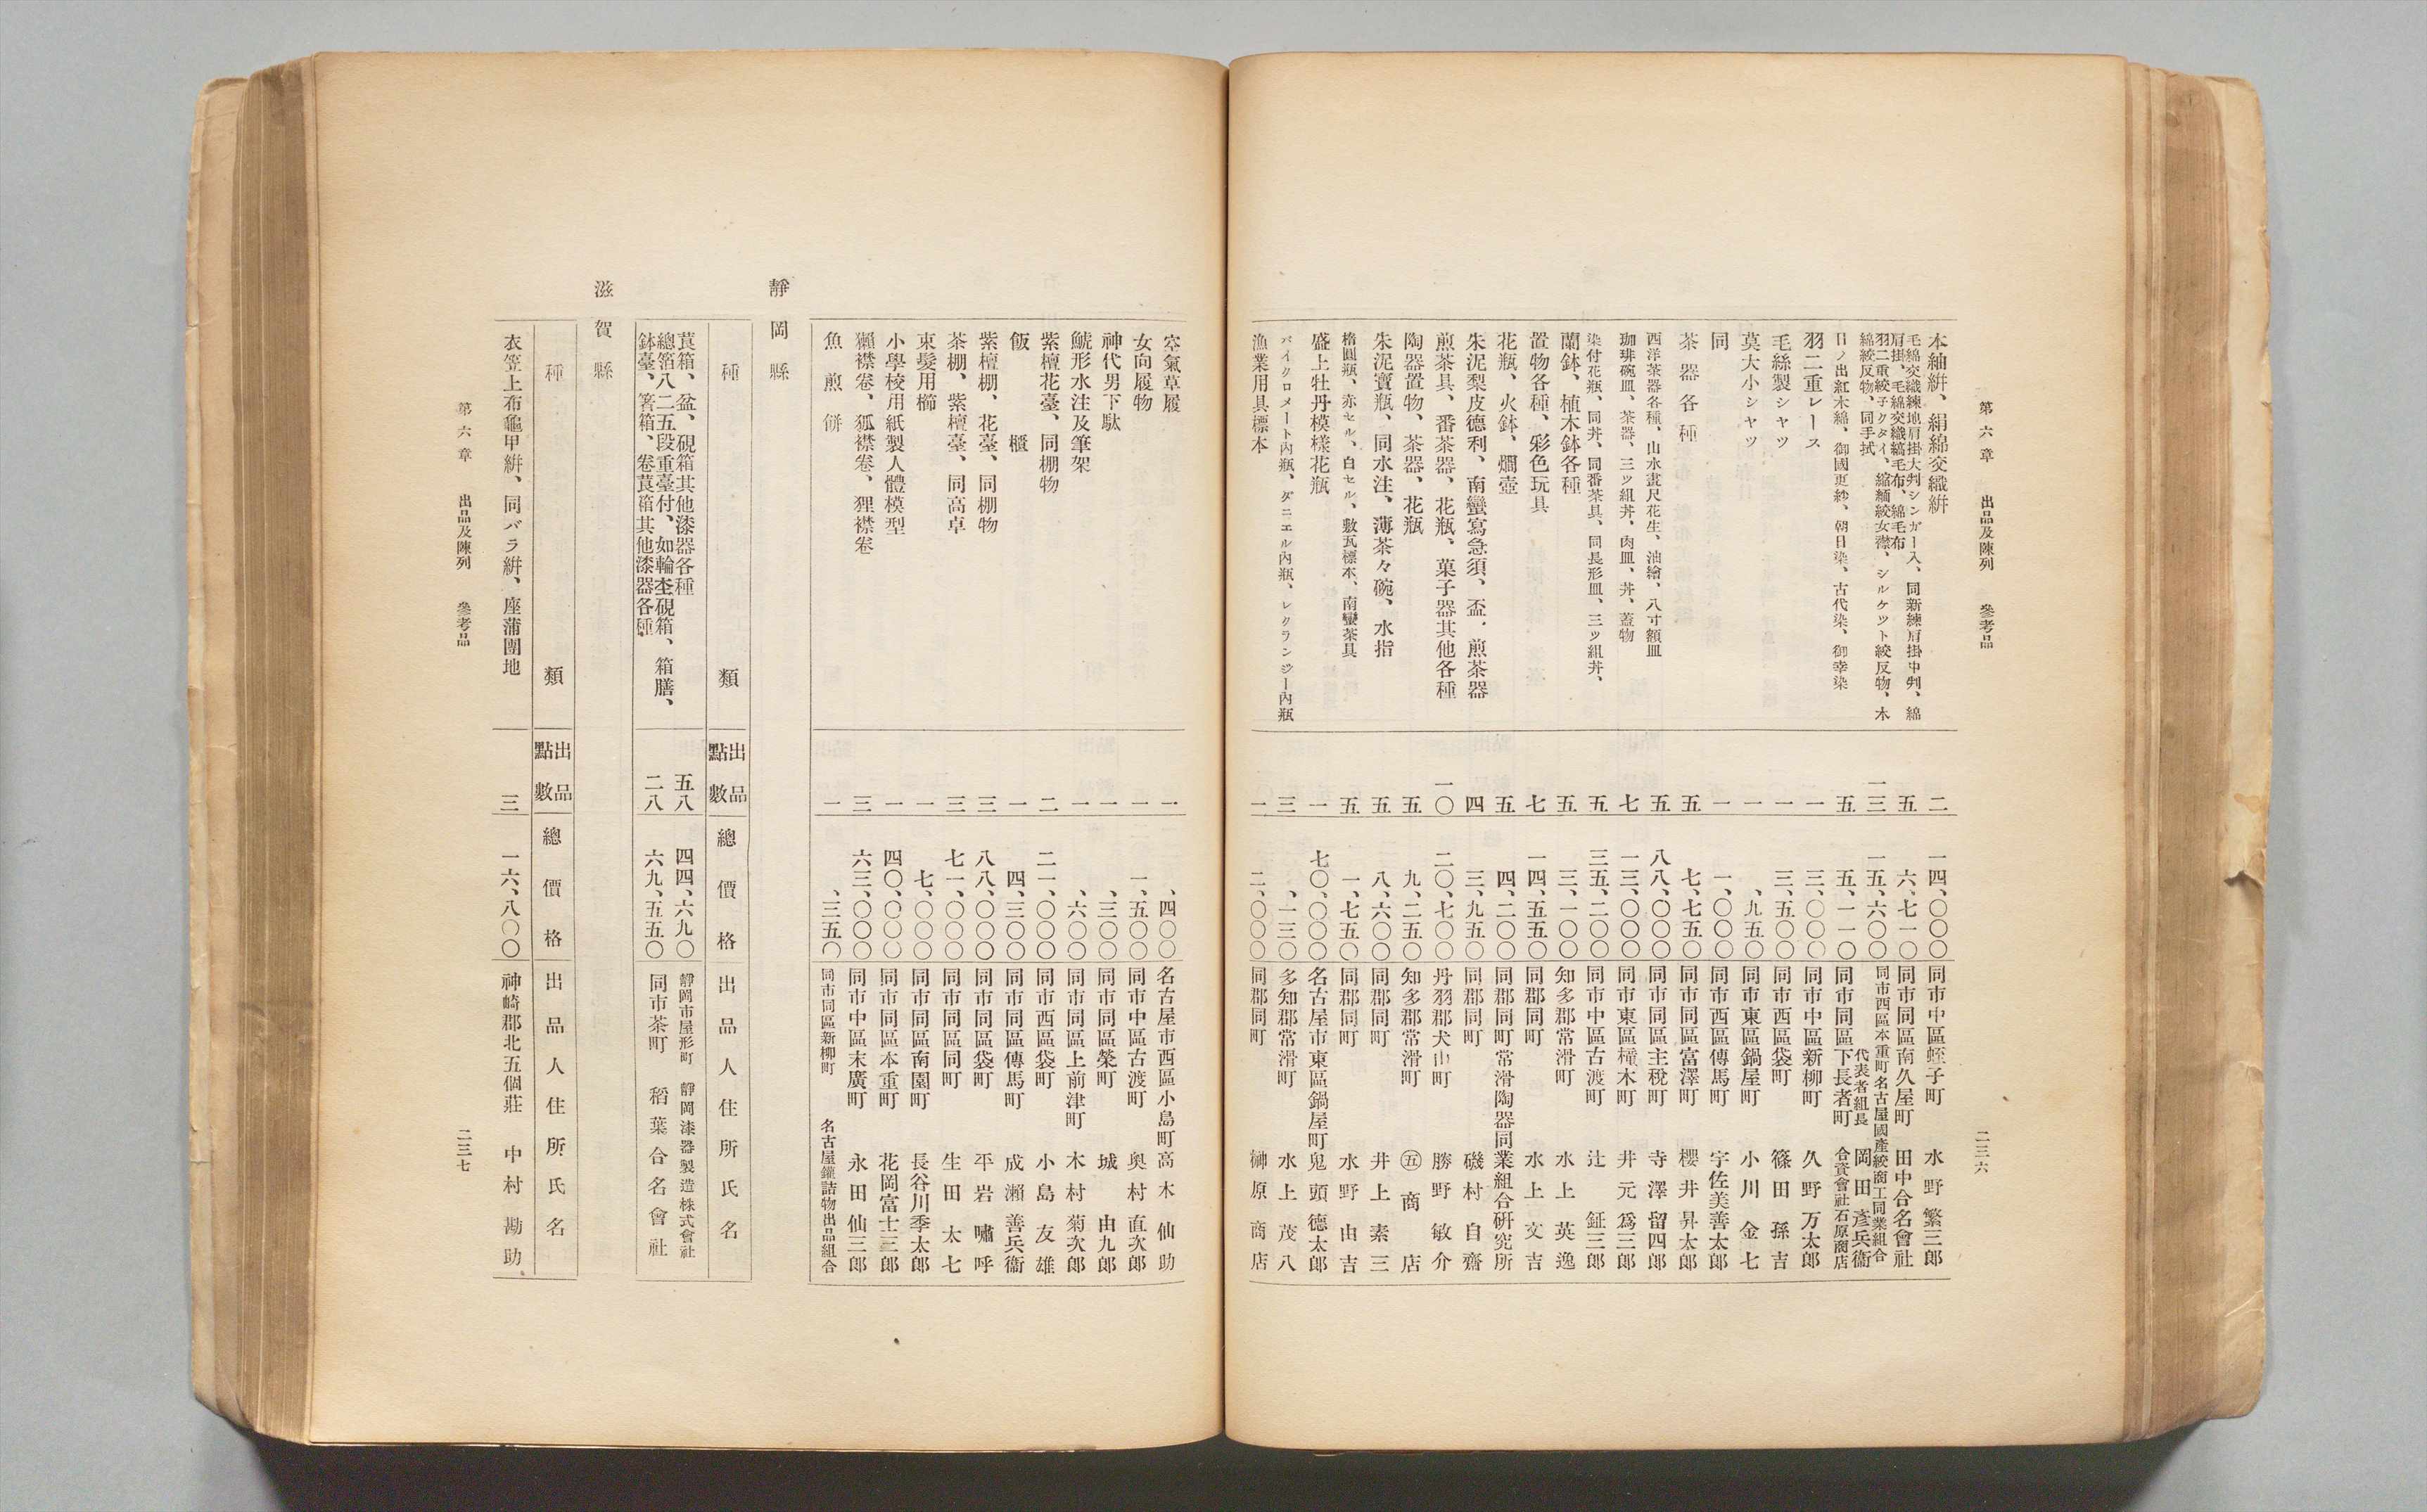 第六章 出品及陳列 參考品 二三六
本紬絣、絹綿交織絣 二 一四、〇〇〇 同市中區蛭子町 水野繁三郎
毛綿交織練地肩掛大判シンガー入、同新練肩掛中判、綿
肩掛、毛綿交織縞毛布、綿毛布 五 六、七一〇 同市同區南久屋町 田中合名會社
羽二重絞子クタイ、縮緬絞女襟、シルケット絞反物、木
綿絞反物、同手拭 一三 一五、六〇〇 同市西區本重町名古屋國產絞商工同業組合
代表者組長 岡田彥兵衞
日ノ出紅木綿、御國更紗、朝日染、古代染、御幸染 五 五、一一〇 同市同區下長者町 合資會社石原商店
羽二重レース 一 三、〇〇〇 同市中區新柳町 久野万太郎
毛絲製シャツ 一 三、五〇〇 同市西區袋町 篠田孫吉
莫大小シャツ 一 、九五〇 同市東區鍋屋町 小川金七
同 一 一、〇〇〇 同市西區傳馬町 宇佐美善太郎
茶器各種 五 七、七五〇 同市同區富澤町 櫻井昇太郎
西洋茶器各種、山水畫尺花生、油繪、八寸額皿 五 八八、〇〇〇 同市同區主稅町 寺澤留四郎
珈琲碗皿、茶器、三ッ組丼、肉皿、丼、蓋物 七 一三、〇〇〇 同市東區橦木町 井元爲三郎
染付花瓶、同丼、同番茶具、同長形皿、三ッ組丼、 五 三五、二〇〇 同市中區古渡町 辻鉦三郎
蘭鉢、植木鉢各種 五 三、一〇〇 知多郡常滑町 水上英逸
置物各種、彩色玩具 七 一四、五五〇 同郡同町 水上文吉
花瓶、火鉢、燗壺 五 四、二〇〇 同郡同町常滑陶器同業組合研究所
朱泥梨皮德利、南蠻寫急須、盃、煎茶器 四 三、九五〇 同郡同町 磯村自齋
煎茶具、番茶器、花瓶、菓子器其他各種 一〇 二〇、七〇〇 丹羽郡犬山町 勝野敏介
陶器置物、茶器、花瓶 五 九、二五〇 知多郡常滑町 ㊄商店
朱泥寶瓶、同水注、薄茶々碗、水指 五 八、六〇〇 同郡同町 井上素三
楕圓瓶、赤セル、白セル、敷瓦標本、南蠻茶具 五 一、七五〇 同郡同町 水野由吉
盛上牡丹模樣花瓶 一 七〇、〇〇〇 名古屋市東區鍋屋町 鬼頭德太郎
バイクロメート內瓶、ダニエル內瓶、レクランシー內瓶 三 、一三〇 多知郡常滑町 水上茂八
漁業用具標本 一 二、〇〇〇 同郡同町 榊原商店
空氣草履 一 、四〇〇 名古屋市西區小島町 高木仙助
女向履物 一 一、五〇〇 同市中區古渡町 奧村直次郎
神代男下駄 一 、三〇〇 同市同區榮町 城由九郎
鯱形水注及筆架 一 、六〇〇 同市同區上前津町 木村菊次郎
紫檀花臺、同棚物 二 二一、〇〇〇 同市西區袋町 小島友雄
飯櫃 一 四、三〇〇 同市同區傳馬町 成瀨善兵衞
紫檀棚、花臺、同棚物 三 八八、〇〇〇 同市同區袋町 平岩嘯呼
茶棚、紫檀臺、同高卓 三 七一、〇〇〇 同市同區同町 生田太七
束髮用櫛 一 七、〇〇〇 同市同區南園町 長谷川季太郎
小學校用紙製人體模型 一 四〇、〇〇〇 同市同區本重町 花岡富士三郎
獺襟卷、狐襟卷、狸襟卷 三 六三、〇〇〇 同市中區末廣町 永田仙三郎
魚煎餅 一 、三五〇 同市同區新柳町 名古屋罐詰物出品組合
靜岡縣
種類 出品點數 總價格 出品人住所氏名
莨箱、盆、硯箱其他漆器各種 五八 四四、六九〇 靜岡市屋形町 靜岡漆器製造株式會社
總箔八二五段重臺付、如輪杢硯箱、箱膳、
鉢臺、箸箱、卷莨箱其他漆器各種 二八 六九、五五〇 同市茶町 稻葉合名會社
滋賀縣
種類 出品點數 總價格 出品人住所氏名
衣笠上布龜甲絣、同バラ絣、座蒲團地 三 一六、八〇〇 神崎郡北五個莊 中村勘助
第六章 出品及陳列 參考品 二三七